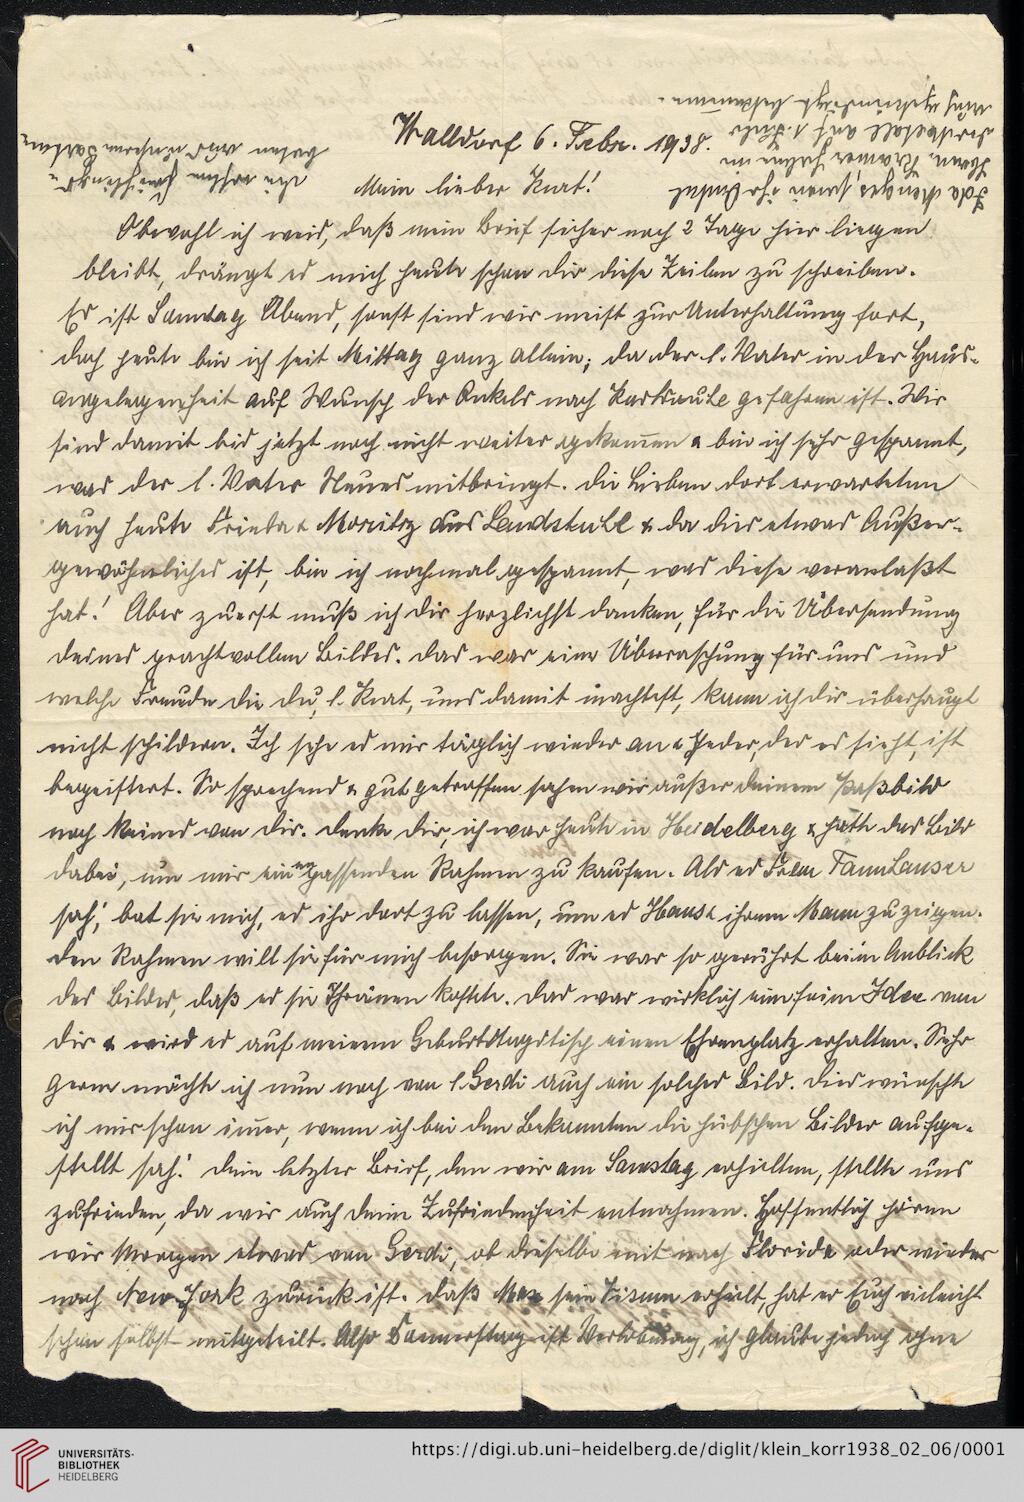 Walldorf 6. Febr. 1938.
Mein lieber Kurt!
Obwohl ich weis, daß mein Brief sicher noch 2 Tage hier liegen
bleibt, drängt es mich heute schon dir diese Zeilen zu schreiben.
Es ist Sonntag Abend, sonst sind wir meist zur Unterhaltung fort,
doch heute bin ich seit Mittag ganz allein; da der l. Vater in der Haus-
angelegenheit auf Wunsch der Onkels nach Karlsruhe gefahren ist. Wir
sind damit bis jetzt noch nicht weiter gekommen & bin ich sehr gespannt,
was der l. Vater Neues mitbringt. Die Lieben dort erwarteten
auch heute Frieda & Moritz aus Landstuhl & da dies etwas Außer-
gewöhnliches ist, bin ich nochmal gespannt, was diese veranlaßt
hat! Aber zuerst muß ich dir herzlichst danken, für die Übersendung
deines prachtvollen Bildes. Das war eine Überraschung für uns und
welche Freude die du, l. Kurt, uns damit machtest, kann ich dir überhaupt
nicht schildern. Ich sehe es mir täglich wieder an & Jeder, der es sieht, ist
begeistert. So sprechend & gut getroffen sahen wir außer deinem Paßbild
noch keines von dir. Denke dir, ich war heute in Heidelberg & hatte das Bild
dabei, um mir einen passenden Rahmen zu kaufen. Als es
sah, bat sie mich, es ihr dort zu lassen, um es Hans & ihrem Mann zu zeigen.
Den Rahmen will sie für mich besorgen. Sie war so gerührt beim Anblick
des Bildes, daß es sie Thränen kostete. Das war wirklich eine feine Idee von
dir & wird es auf meinem Geburtstagstisch einen Ehrenplatz erhalten. Sehr
gerne möchte ich nun noch von l. Gerdi auch ein solches Bild. Dies wünschte
ich mir schon immer, wenn ich bei den Bekannten die hübschen Bilder aufge-
stellt sah! Dein letzter Brief, den wir am Samstag erhielten, stellte uns
zufrieden, da wir auch deine Zufriedenheit entnahmen. Hoffentlich hören
wir Morgen etwas von Gerdi, ob dieselbe mit nach Florida oder wieder
nach New-York zurück ist. Daß Max sein Visum erhielt, hat er Euch vieleicht
schon selbst mitgeteilt. Also Donnerstag ist Verlobung, ich glaube jedoch ohne
UNIVERSITÄTS-
BIBLIOTHEK
HEIDELBERG
https://digi.ub.uni-heidelberg.de/diglit/klein_korr1938_02_06/0001